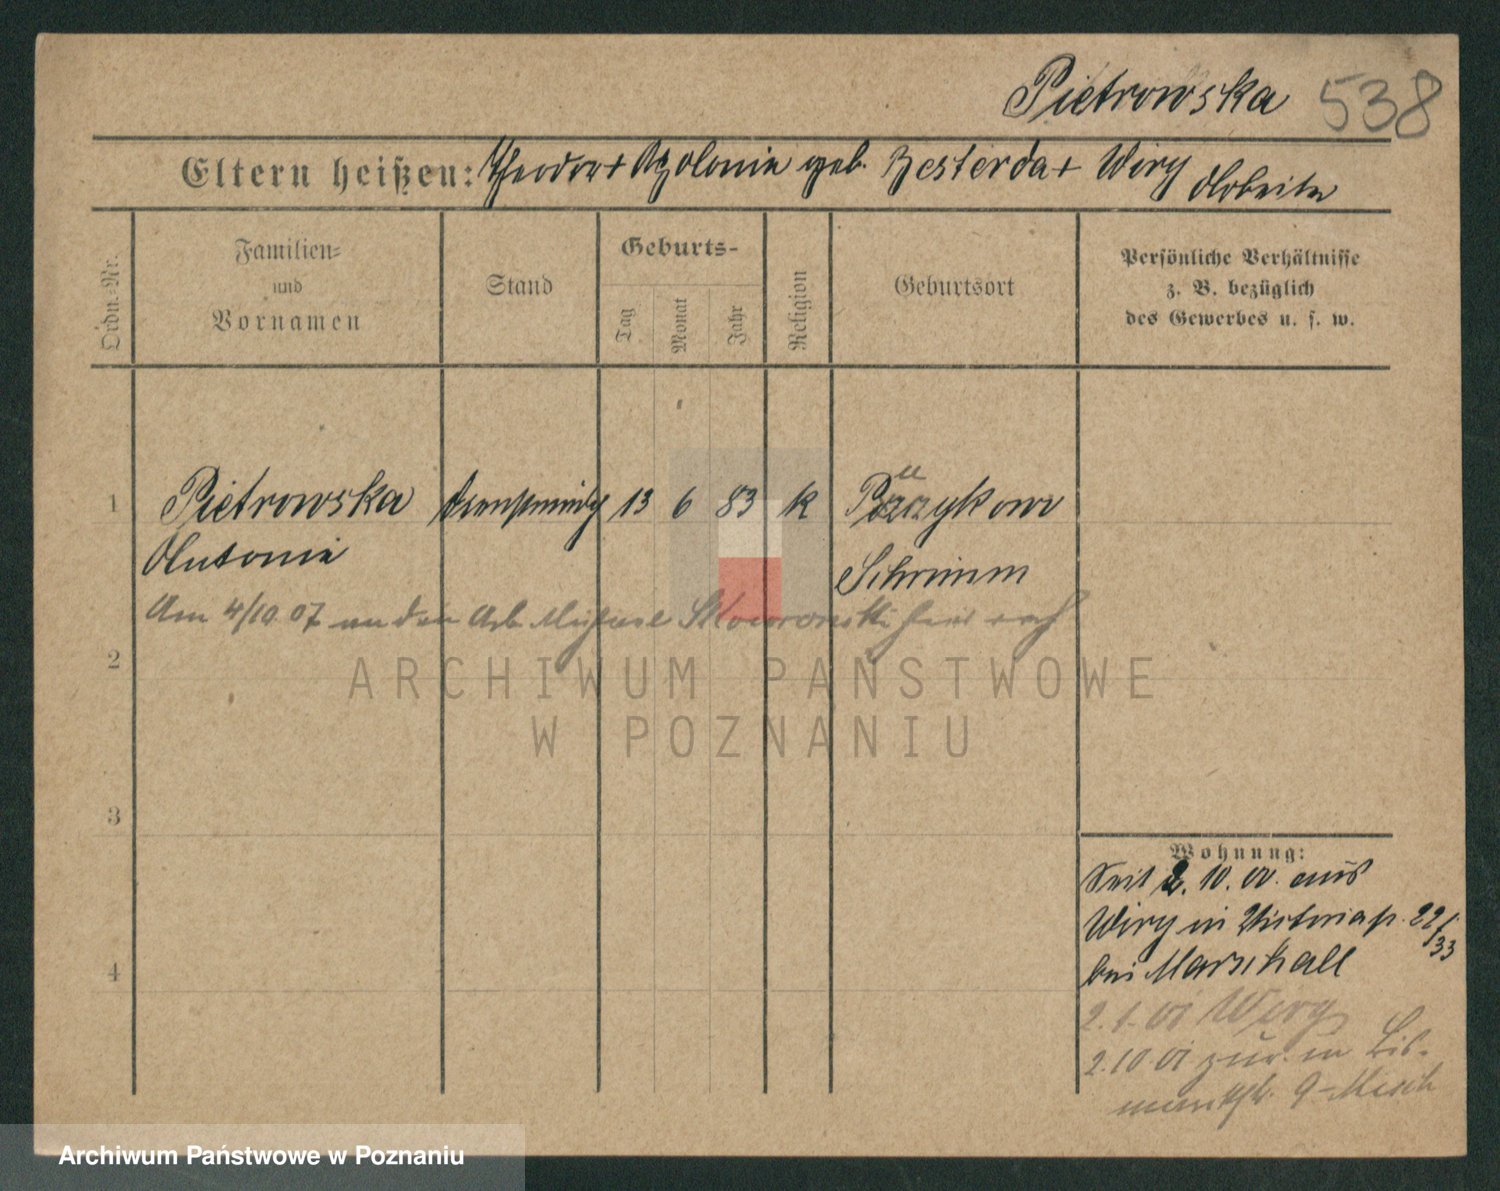 Pietrowska 538
Eltern heißen: Theodor + Apolonia geb. Zesterda + Wiry Arbeiter
Ordn.-Nr.
Familien-
und
Vornamen
Stand
Geburts-
Tag
Monat
Jahr
Religion
Geburtsort
Persönliche Verhältnisse
z. B. bezüglich
des Gewerbes u. s. w.
1 Pietrowska 13 6 83 k
Antonie
Schrimm
Am 4/10 07 an den Arb Skowronski
2
ARCHIWUM PAŃSTWOWE
W POZNANIU
3
4
Wohnung:
Seit 2. 10. 00. aus
Wiry in Victoriast. 22/33
bei Marschall
2.1.01 Wiry
2.10 01 zur. in Bis-
markstr. 9
Archiwum Państwowe w Poznaniu